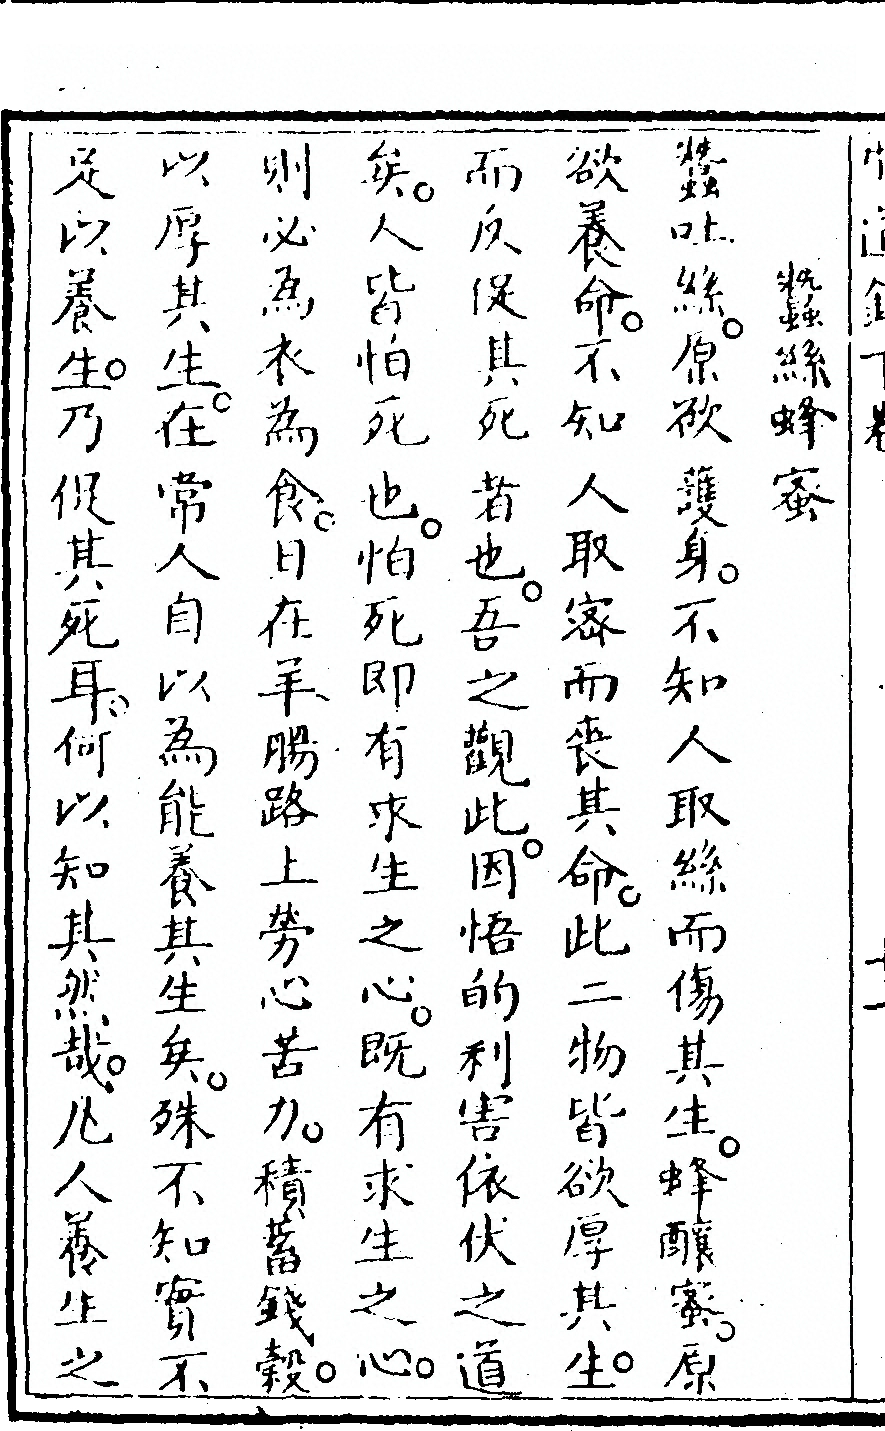 蠶絲蜂蜜
蠶吐絲。原欲護身。不知人取絲而傷其生。蜂釀蜜。原
欲養命。不知人取蜜而喪其命。此二物皆欲厚其生。
而反促其死者也。吾之觀此。因悟的利害依伏之道
矣。人皆怕死也。怕死即有求生之心。既有求生之心。
則必為衣為食。日在羊腸路上勞心苦力。積蓄錢穀。
以厚其生。在常人自以為能養其生矣。殊不知實不
足以養生。乃促其死耳。何以知其然哉。凡人養生之